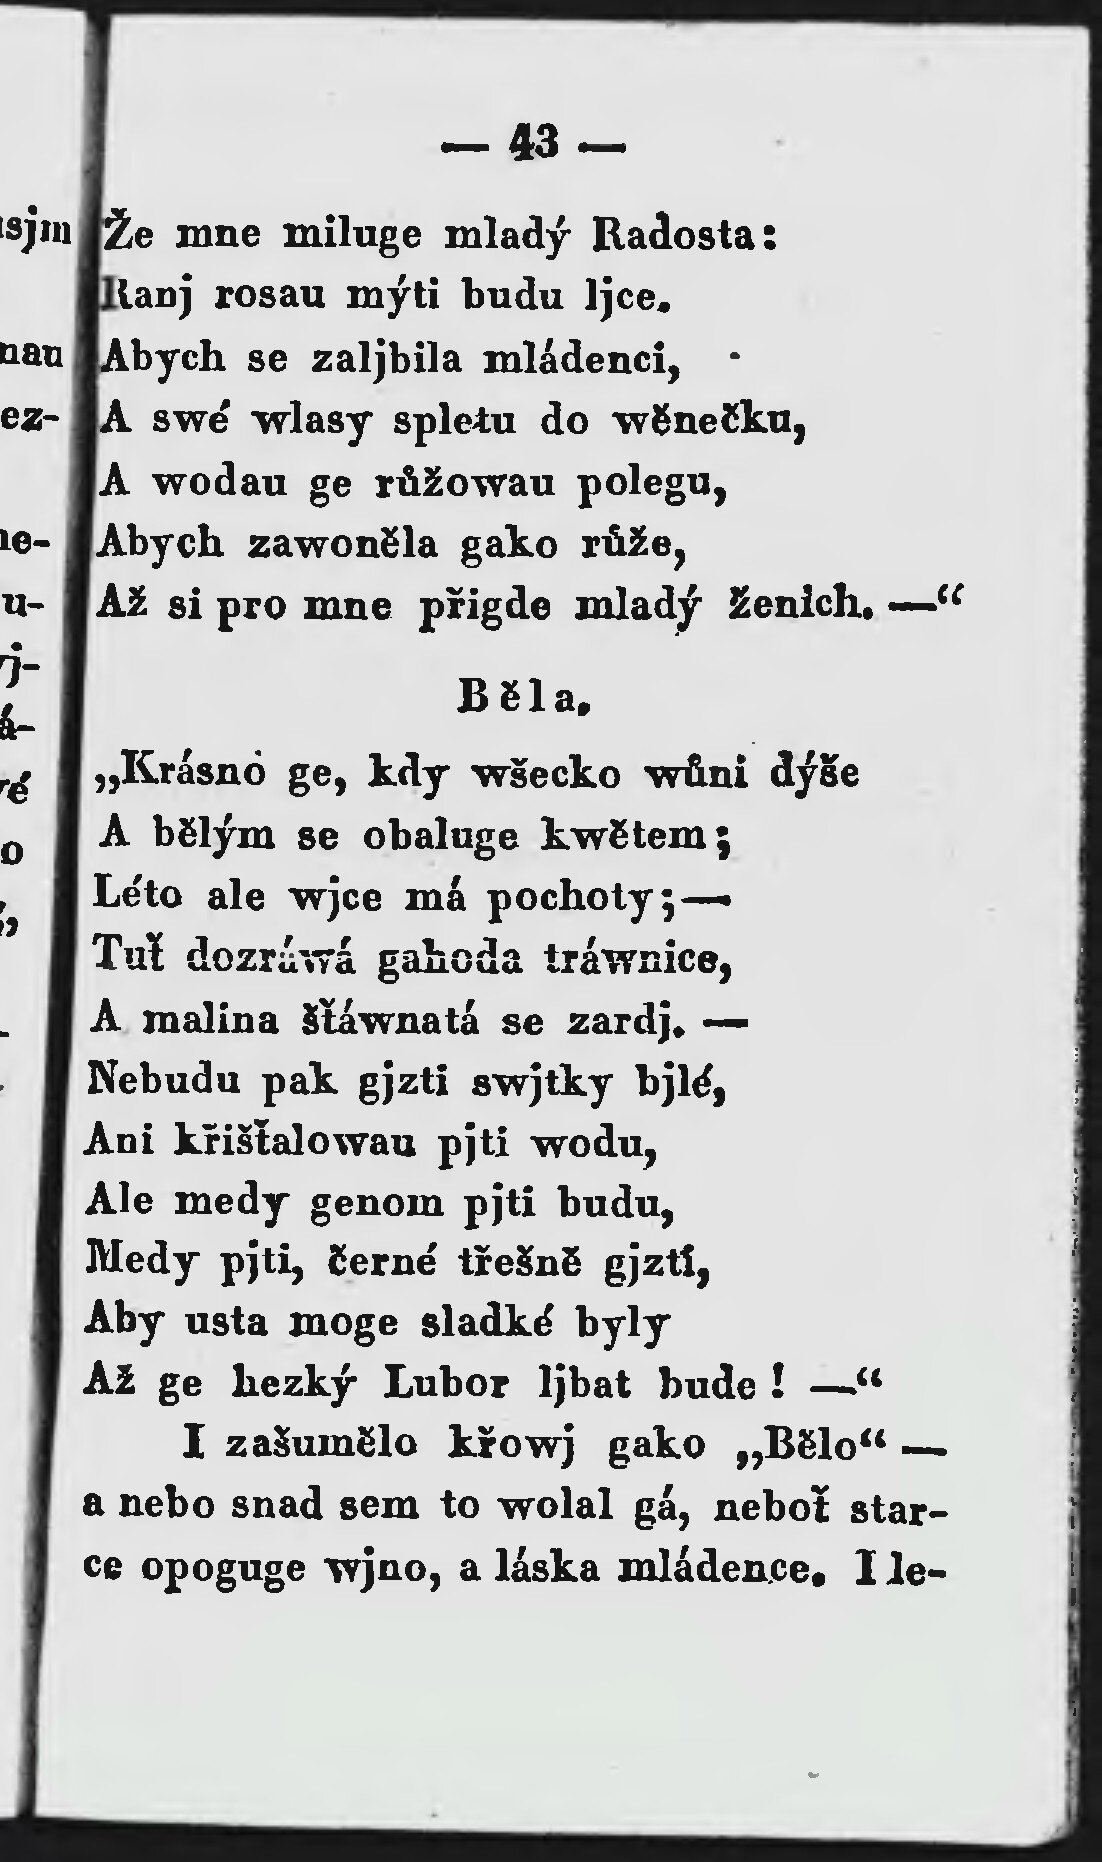 — 43 —
Že mne miluge mladý Radosta:
Ranj rosau mýti budu ljce.
Abych se zaljbila mládenci,
A swé wlasy spletu do wěnečku,
A wodau ge růžowau polegu,
Abych zawoněla gako růže,
Až si pro mne přigde mladý ženich. —“
Běla.
„Krásno ge, kdy wšecko wůni dýše
A bělým se obaluge kwětem;
Léto ale wjce má pochoty; —
Tuť dozráwá gahoda tráwnice,
A malina šťáwnatá se zardj. —
Nebudu pak gjzti swjtky bjlé,
Ani křišťalowau pjti wodu,
Ale medy genom pjti budu,
Medy pjti, černé třešně gjzti,
Aby usta moge sladké byly
Až ge hezký Lubor ljbat bude! —“
I zašumělo křowj gako „Bělo“ —
a nebo snad sem to wolal gá, neboť star-
ce opoguge wjno, a láska mládence. I le-